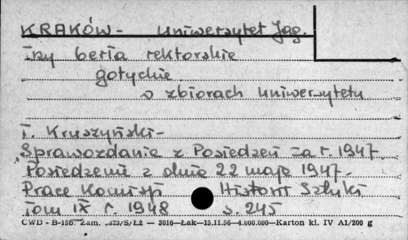 KRAKÓW - Uniwersytet Jag.
Trzy berła rektorskie
gotyckie
o zbiorach uniwersytetu
T. Kruszyński -
"Sprawozdanie z Posiedzeń za r. 1947
Posiedzenie z dnia 22 maja 1947 -
Prace Komisji Historii Sztuki
Tom IX r. 1948 s. 245
CWD - B-156. Zam. S/Łż — 3016—Łak—15.11.56—4.000.000—Karton kl. IV A1/200 g